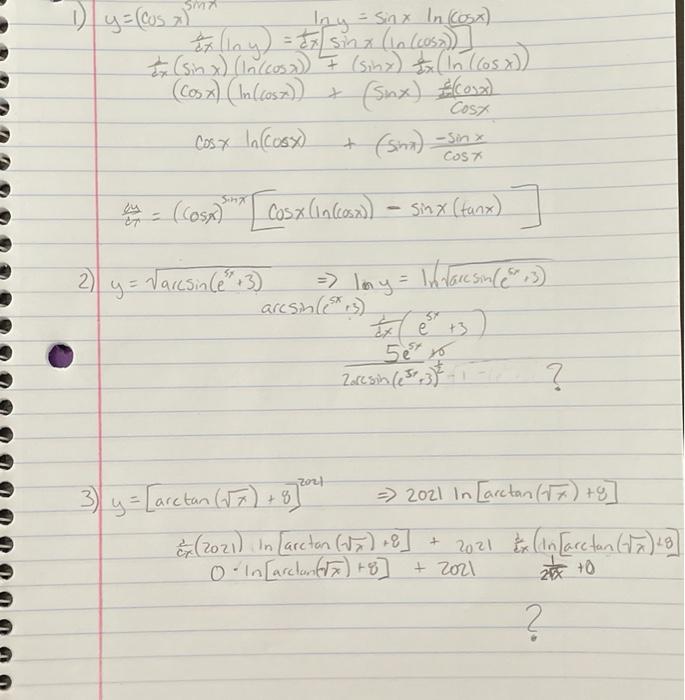 1) y=(cos x)^sinx    ln y = sin x ln(cosx)
d/dx (ln y) = d/dx [sin x (ln(cosx))]
d/dx (sin x) (ln(cosx)) + (sinx) d/dx (ln(cosx))
(cosx) (ln(cosx)) + (sinx) d/dx(cosx)/cosx
cosx ln(cosx) + (sinx) -sin x/cosx
dy/dx = (cosx)^sinx [cosx(ln(cosx)) - sinx(tanx)]
2) y = √arcsin(e^5x+3)    ⇒ ln y = ln√arcsin(e^5x+3)
arcsin(e^5x+3)
d/dx (e^5x +3)
5e^5x +0
2arcsin(e^5x+3)^½    ?
3) y = [arctan(√x) + 8]^2021    ⇒ 2021 ln [arctan(√x) +8]
d/dx (2021) ln [arctan(√x) +8] + 2021 d/dx (ln[arctan(√x)+8]
0·ln[arctan(√x) +8] + 2021    1/2√x +0
?